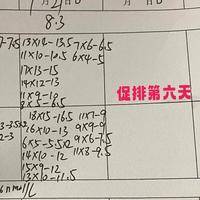 8.3
7-7.5 13×12-13.5 7×6-6.5
11×10-10.5 6×4-5
17×13-15
14×12-13
11×9-10
促排第六天
18×15-16.5 11×7-9
16×10-13 9×9-9
6×5-5.5×2 9×6-7.5
14×10-12 11×8-9.5
15×9-12